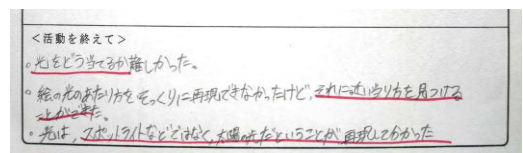 <活動を終えて>
。光をどう当てるか難しかった。
。絵の光のあたり方をそっくりに再現できなかったけど、それに近い当り方を見つける
ことができた。
。光は、スポットライトなどではなく、太陽の光だということが再現してわかった